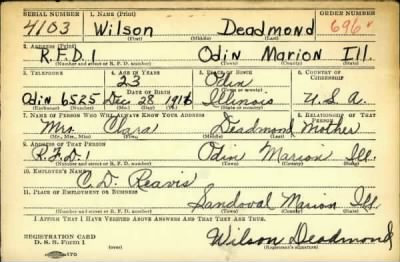 SERIAL NUMBER 1. NAME (Print) ORDER NUMBER
4103 Wilson Deadmond 696
(First) (Middle) (Last)
2. ADDRESS (Print)
R.F.D.1 Odin Marion Ill.
(Number and street or R. F. D. number) (Town) (County) (State)
3. TELEPHONE 4. AGE IN YEARS 5. PLACE OF BIRTH 6. COUNTRY OF CITIZENSHIP
23 Odin
DATE OF BIRTH (Town or county)
Odin 6525 Dec 28 1916 Illinois U.S.A.
(Exchange) (Number) (Mo.) (Day) (Yr.) (State or country)
7. NAME OF PERSON WHO WILL ALWAYS KNOW YOUR ADDRESS 8. RELATIONSHIP OF THAT PERSON
Mrs. Clara Deadmond Mother
(Mr., Mrs., Miss) (First) (Middle) (Last)
9. ADDRESS OF THAT PERSON
R.F.D.1 Odin Marion Ill.
(Number and street or R. F. D. number) (Town) (County) (State)
10. EMPLOYER'S NAME
C.D. Reavis
11. PLACE OF EMPLOYMENT OR BUSINESS
Sandoval Marion Ill
(Number and street or R. F. D. number) (Town) (County) (State)
I AFFIRM THAT I HAVE VERIFIED ABOVE ANSWERS AND THAT THEY ARE TRUE.
REGISTRATION CARD
D. S. S. Form 1 Wilson Deadmond
(Registrant's signature)